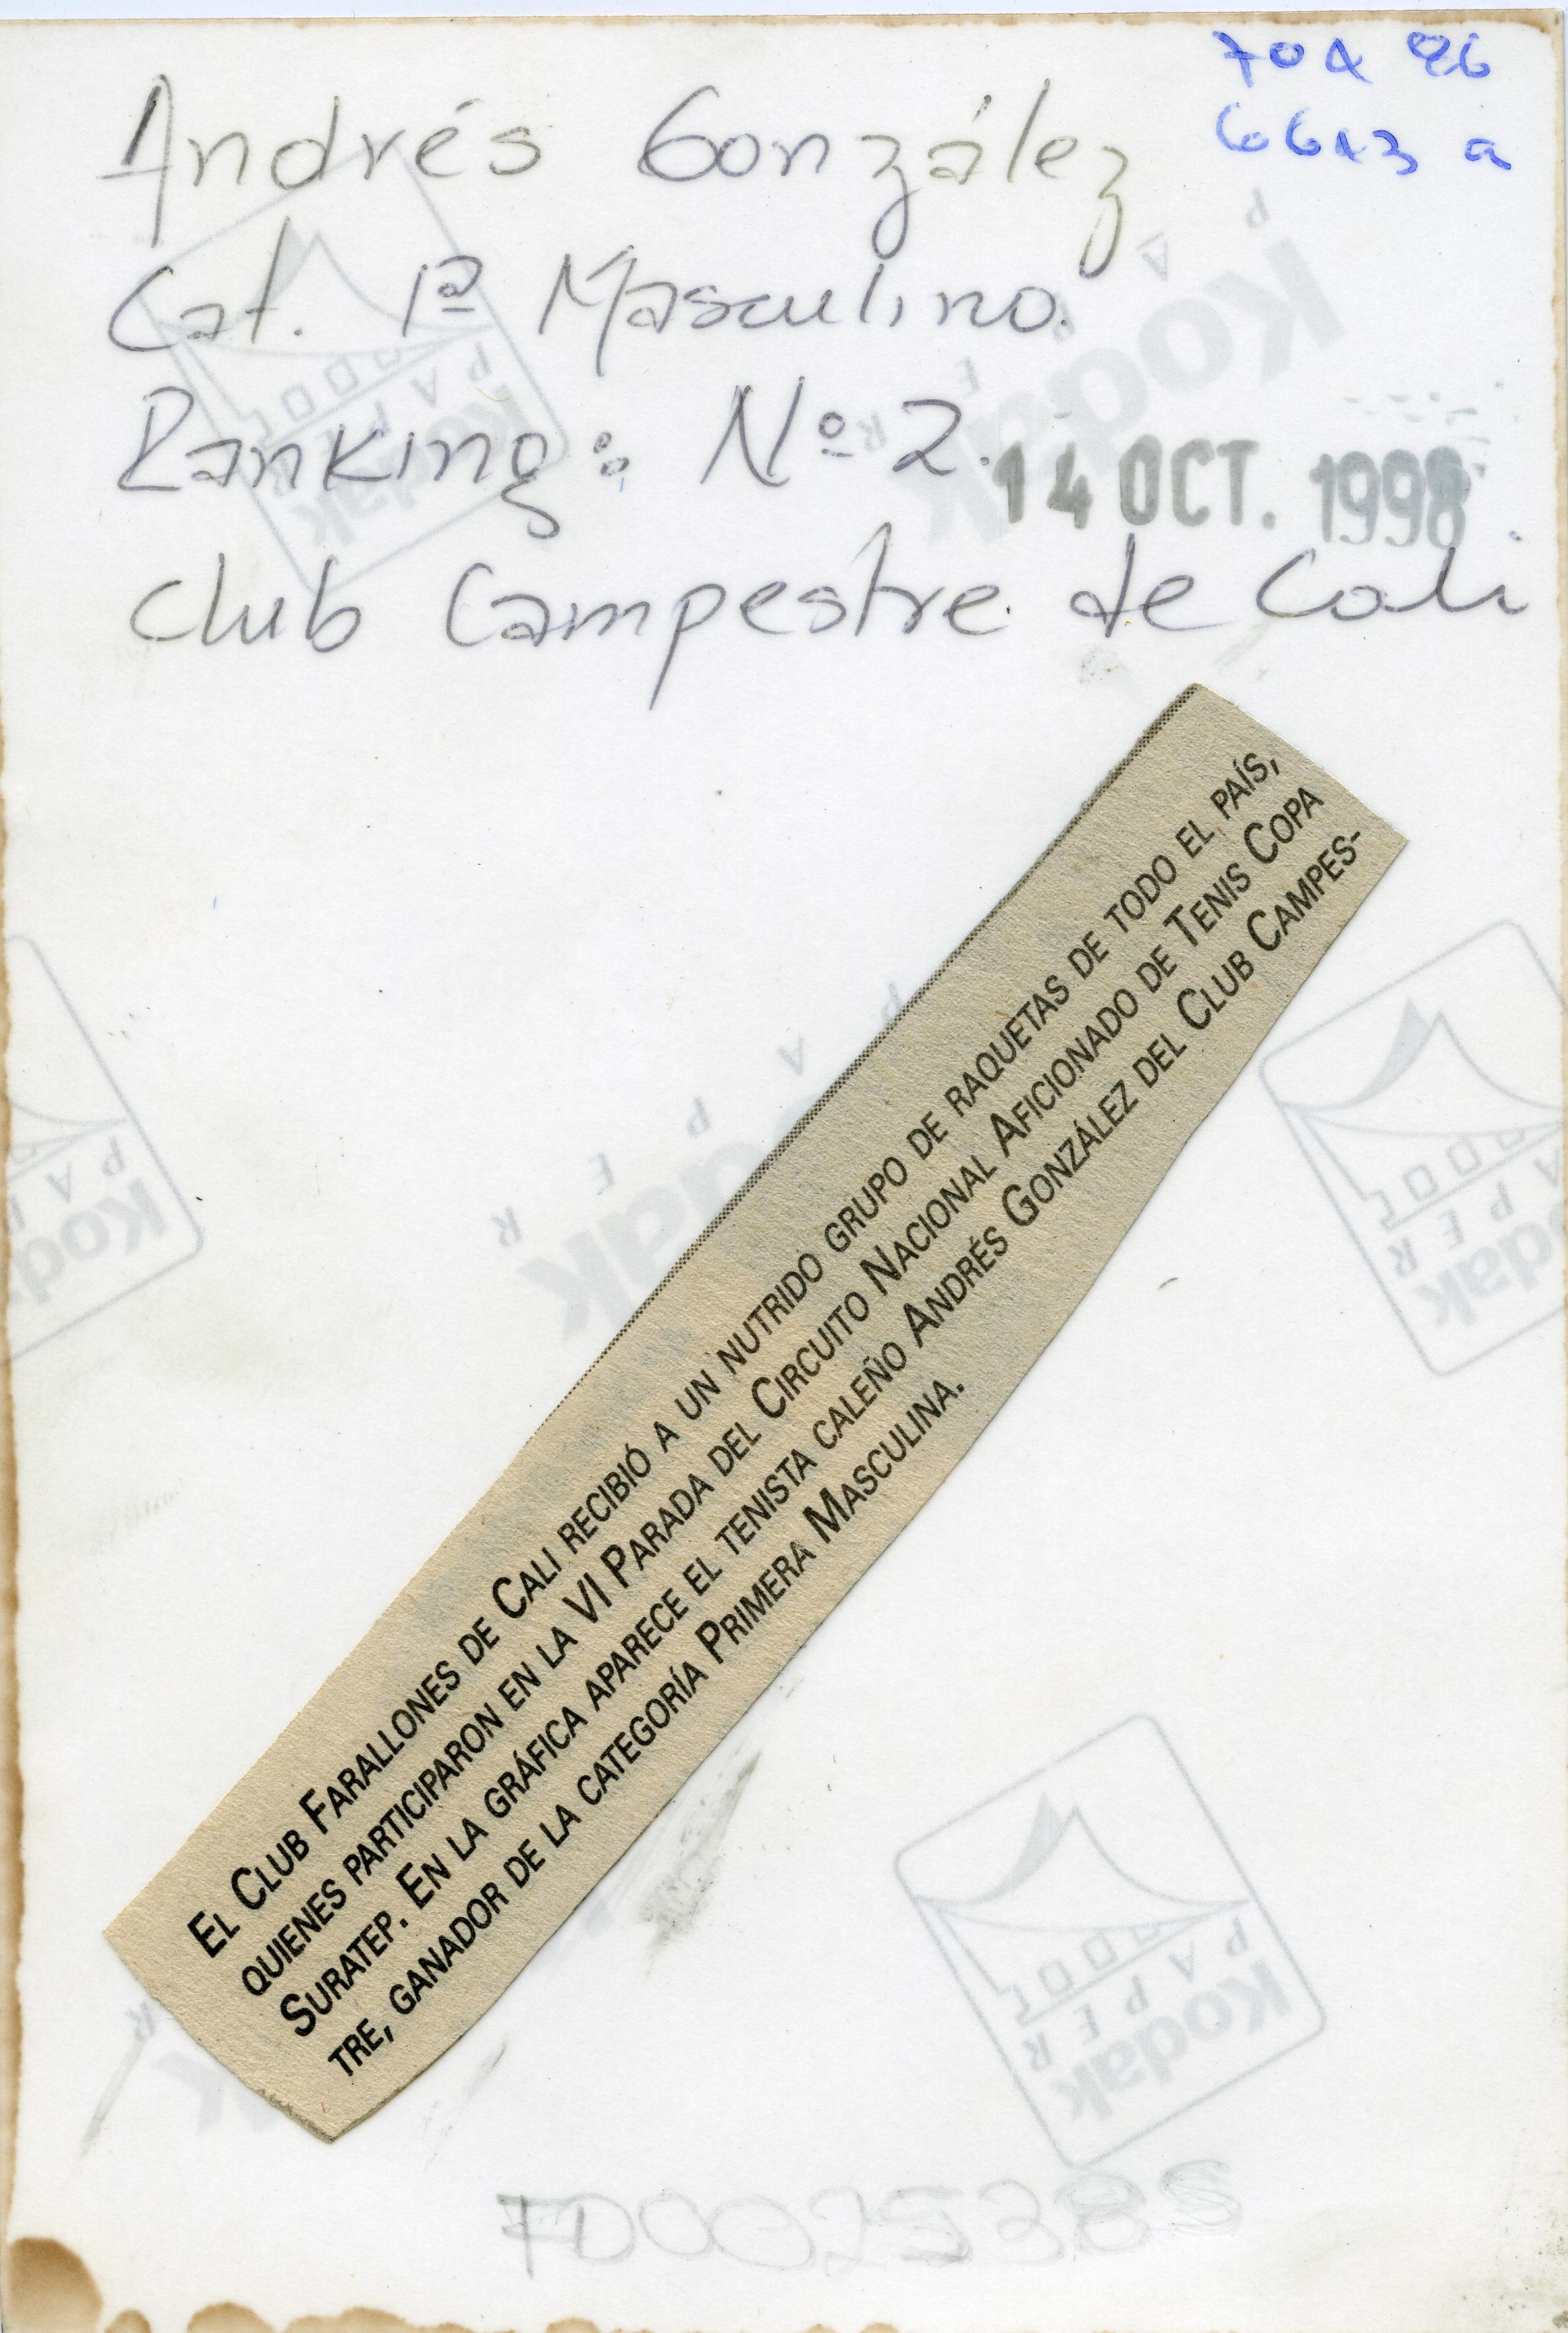 70 x 96
66x3 a
Andrés González
Cat. 1ª Masculino.
Ranking: Nº 2.
14 OCT. 1998
Club Campestre de Cali
EL CLUB FARALLONES DE CALI RECIBIÓ A UN NUTRIDO GRUPO DE RAQUETAS DE TODO EL PAÍS,
QUIENES PARTICIPARON EN LA VI PARADA DEL CIRCUITO NACIONAL AFICIONADO DE TENIS COPA
SURATEP. EN LA GRÁFICA APARECE EL TENISTA CALEÑO ANDRÉS GONZÁLEZ DEL CLUB CAMPES-
TRE, GANADOR DE LA CATEGORÍA PRIMERA MASCULINA.
Kodak
PAPER